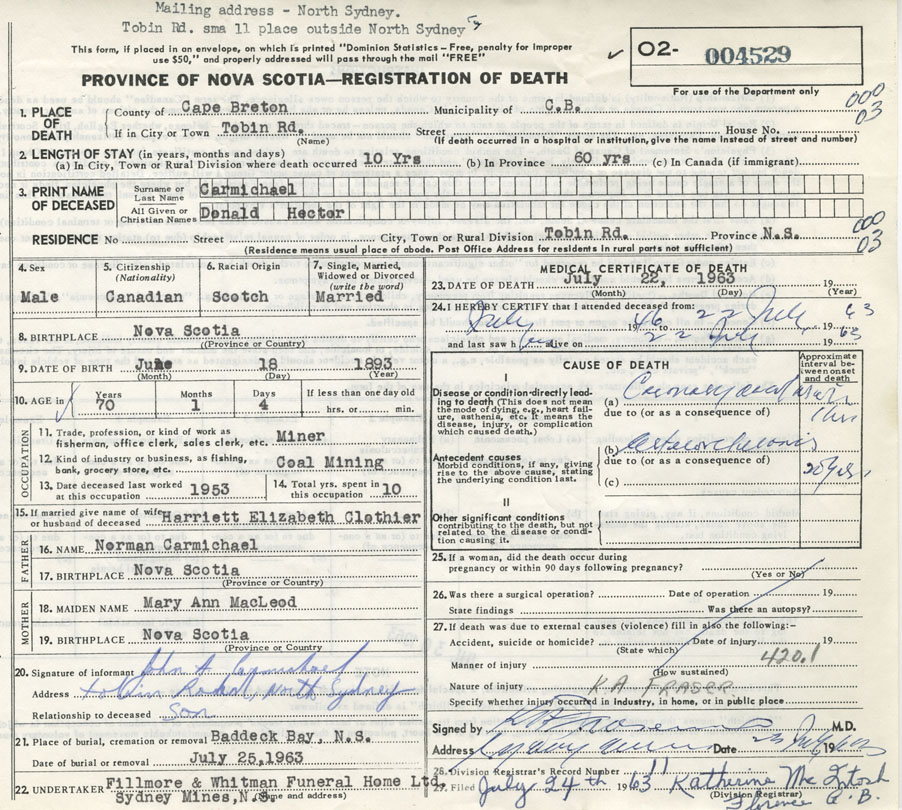 Mailing address - North Sydney.
Tobin Rd. sma 11 place outside North Sydney
This form, if placed in an envelope, on which is printed "Dominion Statistics – Free, penalty for improper
use $50," and properly addressed will pass through the mail "FREE"
O2- 004529
PROVINCE OF NOVA SCOTIA—REGISTRATION OF DEATH
For use of the Department only
1. PLACE OF DEATH
County of Cape Breton Municipality of C.B.
000
03
If in City or Town Tobin Rd. Street House No.
(Name) (If death occurred in a hospital or institution, give the name instead of street and number)
2. LENGTH OF STAY (in years, months and days)
(a) In City, Town or Rural Division where death occurred 10 Yrs (b) In Province 60 yrs (c) In Canada (if immigrant)
3. PRINT NAME OF DECEASED
Surname or Last Name Carmichael
All Given or Christian Names Donald Hector
RESIDENCE No Street City, Town or Rural Division Tobin Rd. Province N.S.
000
03
(Residence means usual place of abode. Post Office Address for residents in rural parts not sufficient)
4. Sex
Male
5. Citizenship
(Nationality)
Canadian
6. Racial Origin
Scotch
7. Single, Married,
Widowed or Divorced
(write the word)
Married
8. BIRTHPLACE Nova Scotia
(Province or Country)
9. DATE OF BIRTH June 18 1893
(Month) (Day) (Year)
10. AGE in
Years Months Days If less than one day old
70 1 4 hrs. or min.
OCCUPATION
11. Trade, profession, or kind of work as
fisherman, office clerk, sales clerk, etc. Miner
12. Kind of industry or business, as fishing,
bank, grocery store, etc. Coal Mining
13. Date deceased last worked
at this occupation 1953
14. Total yrs. spent in
this occupation 10
15. If married give name of wife
or husband of deceased Harriett Elizabeth Clothier
FATHER
16. NAME Norman Carmichael
17. BIRTHPLACE Nova Scotia
(Province or Country)
MOTHER
18. MAIDEN NAME Mary Ann MacLeod
19. BIRTHPLACE Nova Scotia
(Province or Country
20. Signature of informant John A. Carmichael
Address Tobin Road, North Sydney
Relationship to deceased Son
21. Place of burial, cremation or removal Baddeck Bay, N.S.
Date of burial or removal July 25,1963
22. UNDERTAKER Fillmore & Whitman Funeral Home Ltd.
Sydney Mines,N.S. (Name and address)
MEDICAL CERTIFICATE OF DEATH
23. DATE OF DEATH July 22, 1963
(Month) (Day) (Year)
24. I HEREBY CERTIFY that I attended deceased from:
July 1946 to 22 July 1963
and last saw h alive on 22 July 1963
CAUSE OF DEATH
Approximate
interval be-
tween onset
and death
I
Disease or condition directly lead-
ing to death (This does not mean
the mode of dying, e.g., heart fail-
ure, asthenia, etc. It means the
disease, injury, or complication
which caused death.)
(a) Coronary
due to (or as a consequence of)
Antecedent causes
Morbid conditions, if any, giving
rise to the above cause, stating
the underlying condition last.
(b)
due to (or as a consequence of)
20 yrs
(c)
II
Other significant conditions
contributing to the death, but not
related to the disease or condi-
tion causing it.
25. If a woman, did the death occur during
pregnancy or within 90 days following pregnancy?
(Yes or No)
26. Was there a surgical operation? Date of operation 19
State findings Was there an autopsy?
27. If death was due to external causes (violence) fill in also the following:–
Accident, suicide or homicide? Date of injury 19
(State which)
420.1
Manner of injury
(How sustained)
Nature of injury K A FRASER
Specify whether injury occurred in industry, in home, or in public place
Signed by M.D.
Address Date 19
28. Division Registrar's Record Number 11
29. Filed July 24th 1963 Katherine McIntosh
(Division Registrar)
Florence C.B.